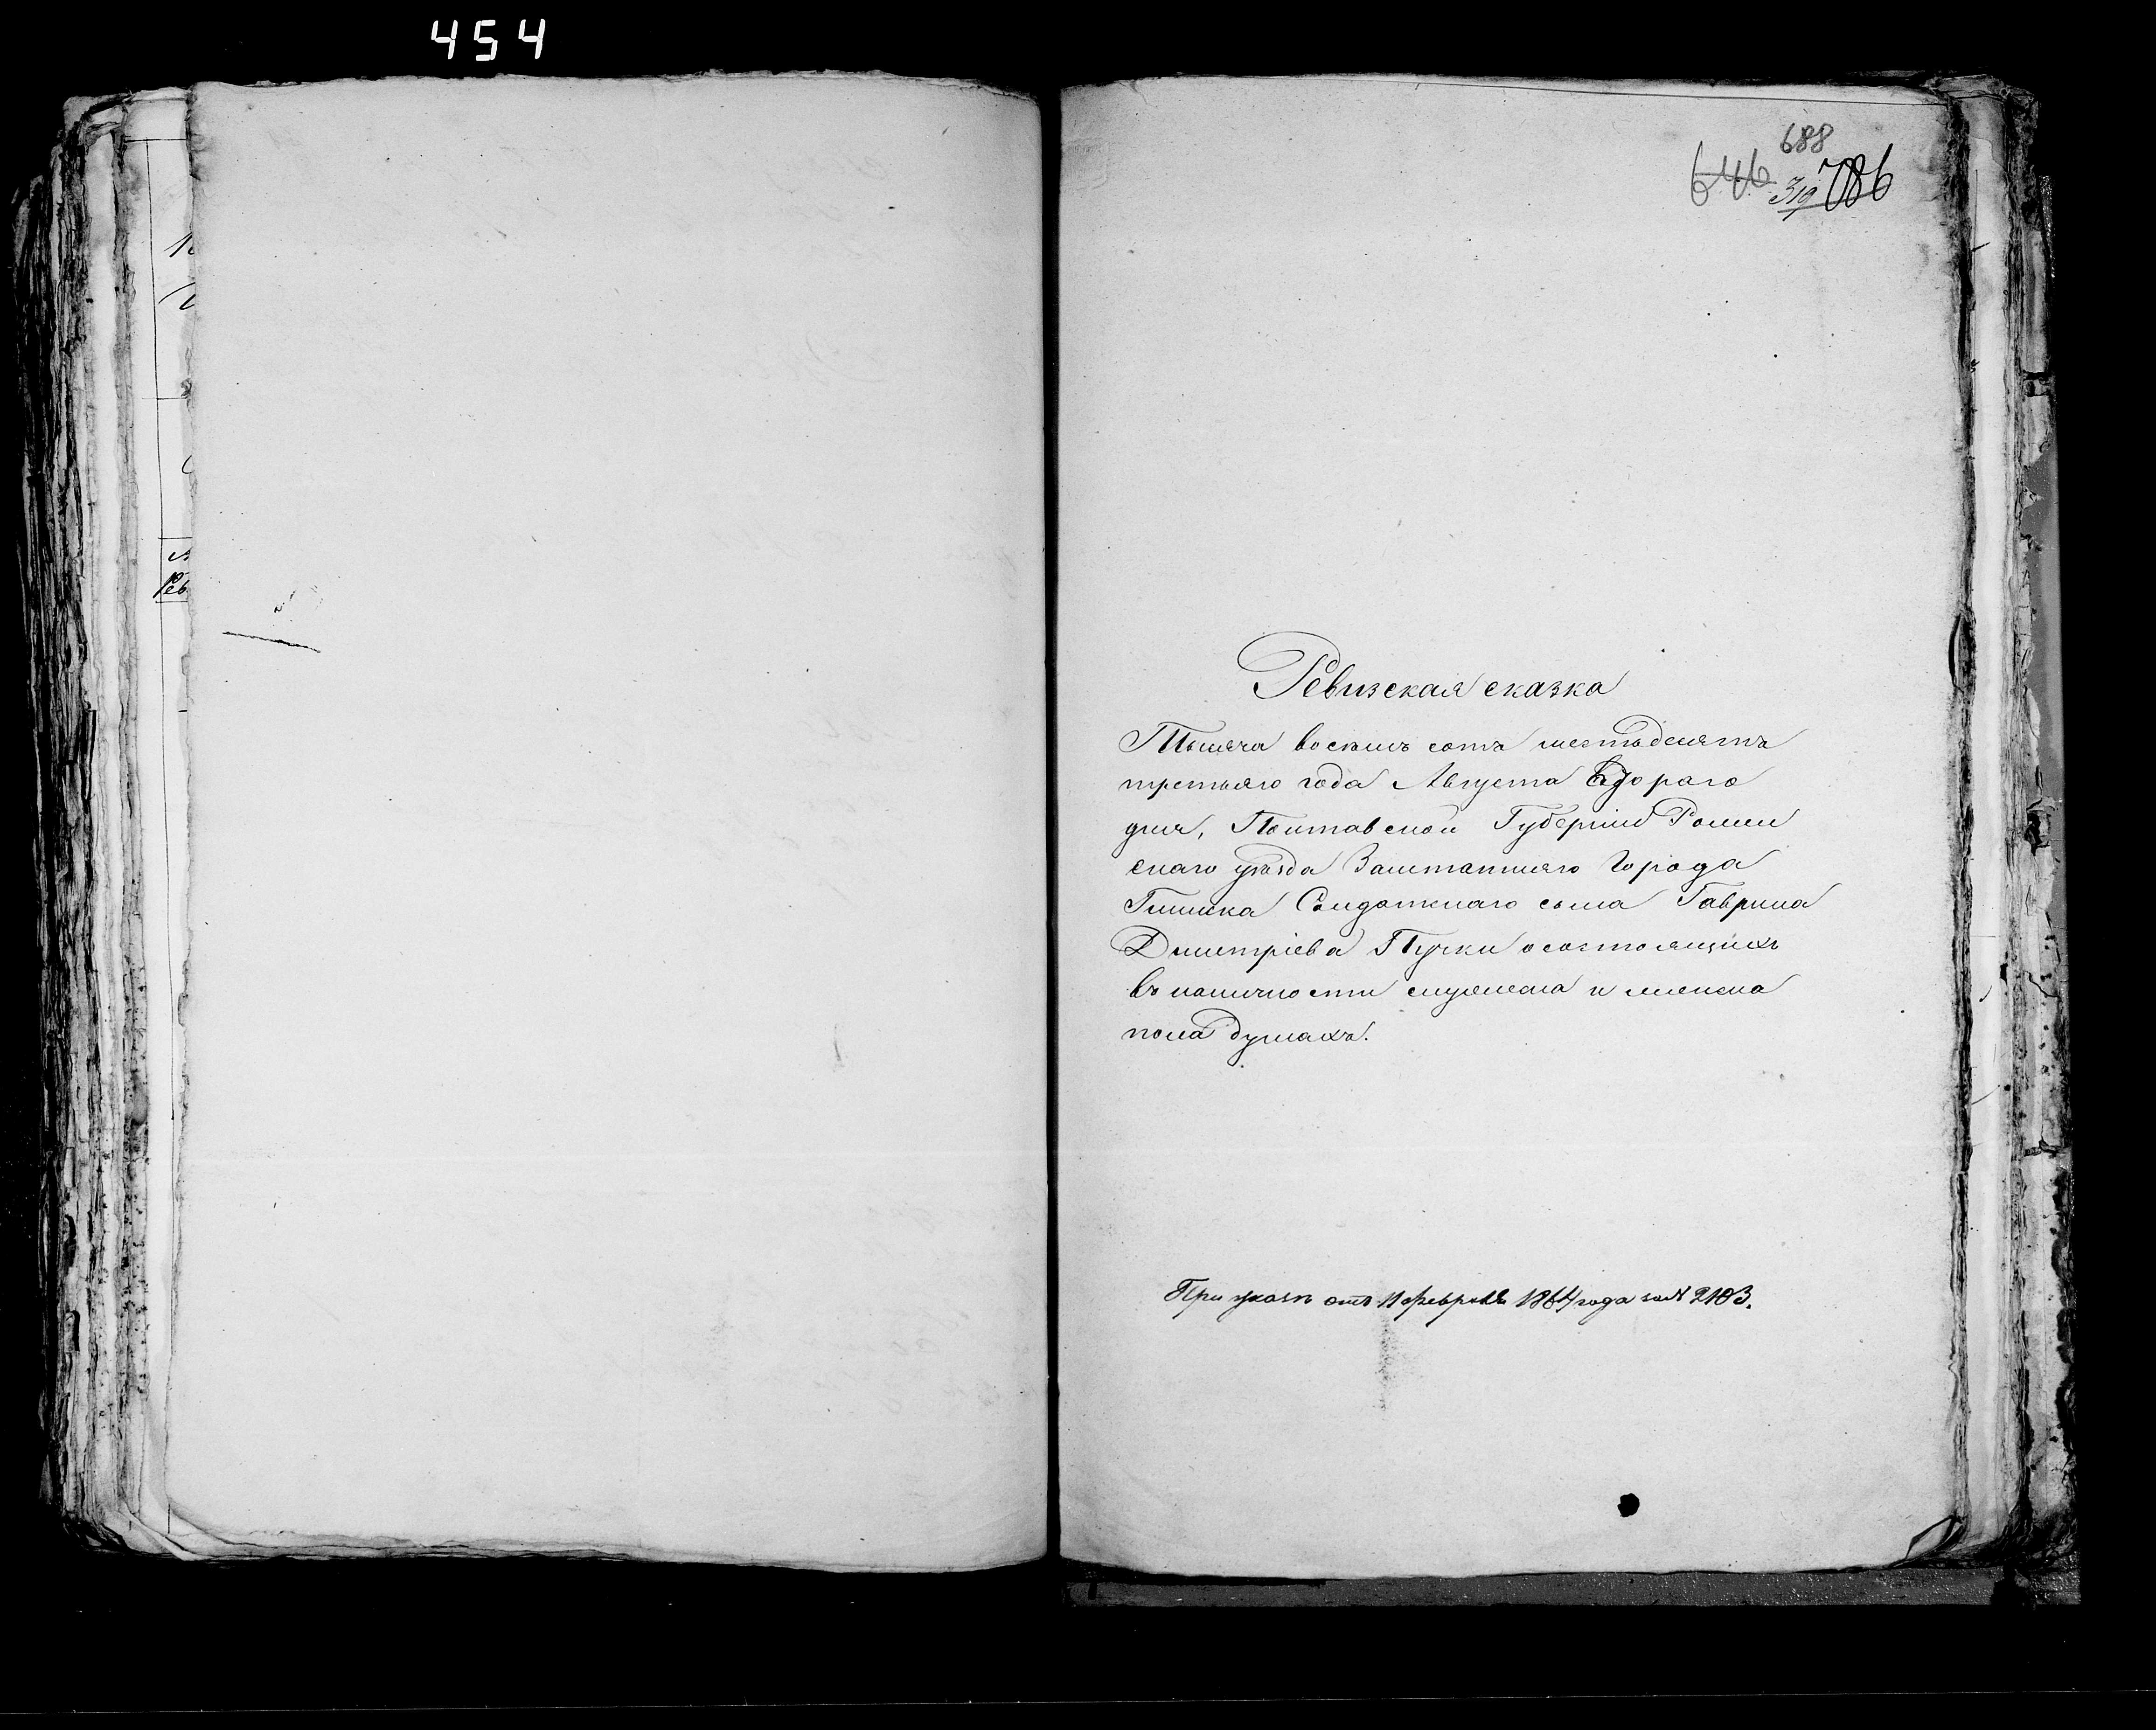 454
688
646 319 786
Ревизская сказка
Тысяча восемь сотъ шестьдесятъ
третьяго года Августа втораго
дня, Полтавской Губерніи Ромен
скаго уѣзда Заштатнаго Города
Глинска Солдатскаго сына Гаврила
Дмитріева Пучки о состоящихъ
въ наличности мужеска и женска
пола душахъ.
При указѣ отъ 11 Февраля 1864 года за № 2103.